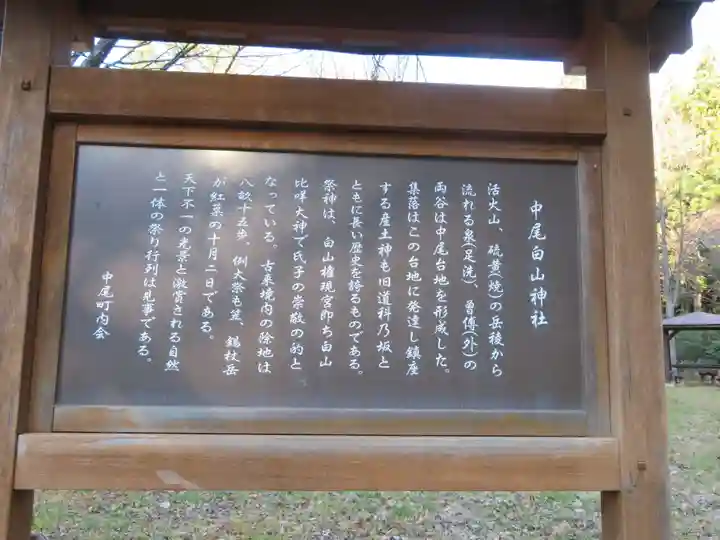 中尾白山神社
活火山、硫黄(焼)の岳後から
流れる泉(足洗)、曽傅(外)の
両谷は中尾台地を形成した。
集落はこの台地に発達し鎮座
する産土神も旧道科乃坂と
ともに長い歴史を誇るものである。
祭神は、白山権現宮即ち白山
比咩大神で氏子の崇敬の的と
なっている。古来境内の除地は
八畝十五歩、例大祭も笠、錫杖岳
が紅葉の十月二日である。
天下不一の光景と激賞される自然
と一体の祭り行列は見事である。
中尾町内会